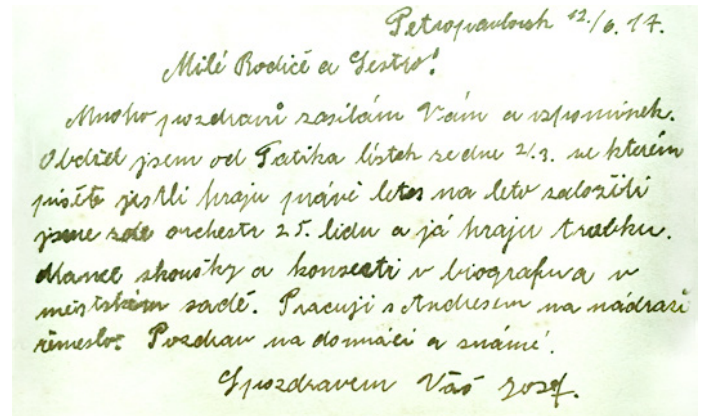 Petropavlovsk 12./6. 17.
Milé Rodičé a Sestro!
Mnoho pozdravů zasílám Vám a vzpomínek.
Obdržel jsem od Tatíka lístek ze dne 2/3. ve kterém
píšéte jestli hraju právě letos na leto založili
jsme zde orchestr 25. lidu a já hraju trubku.
máme skoušky a konserti v biografu a v
městském sadě. Pracuji s Andresem na nádraží
řemeslo. Pozdrav na domácí a známé.
S pozdravem Váš Josef.